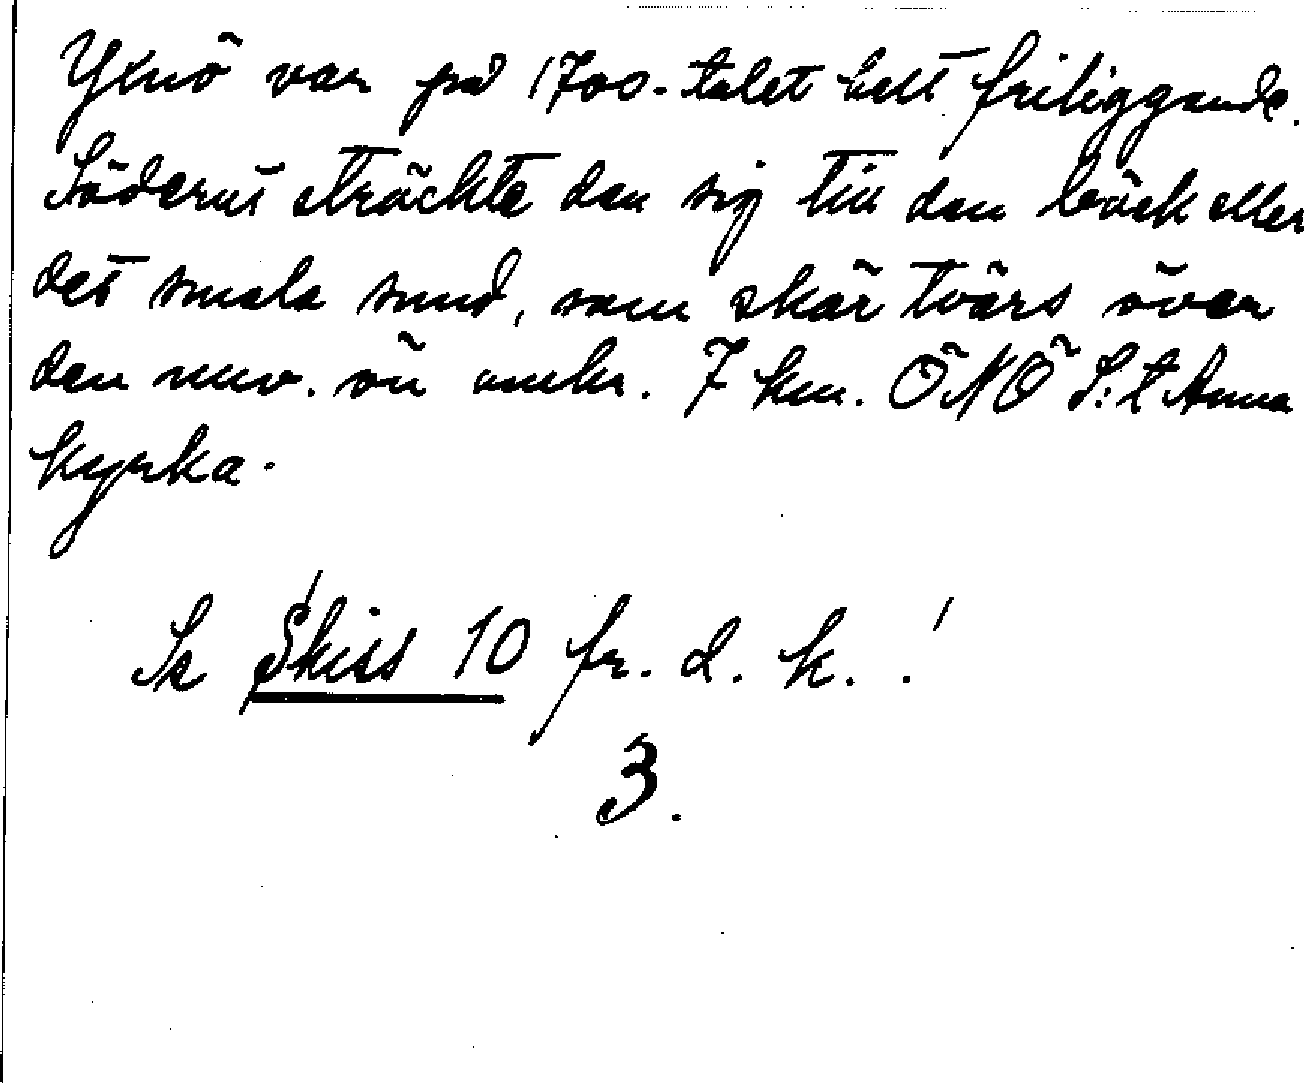 Yxnö var på 1700-talet helt friliggande.
Söderut sträckte den sig till den bäck eller
det smala sund, som skär tvärs över
den nuv. ön omkr. 7 km. ÖNÖ S:t Anna
kyrka.
Se Skiss 10 fr. d. k. !
3.